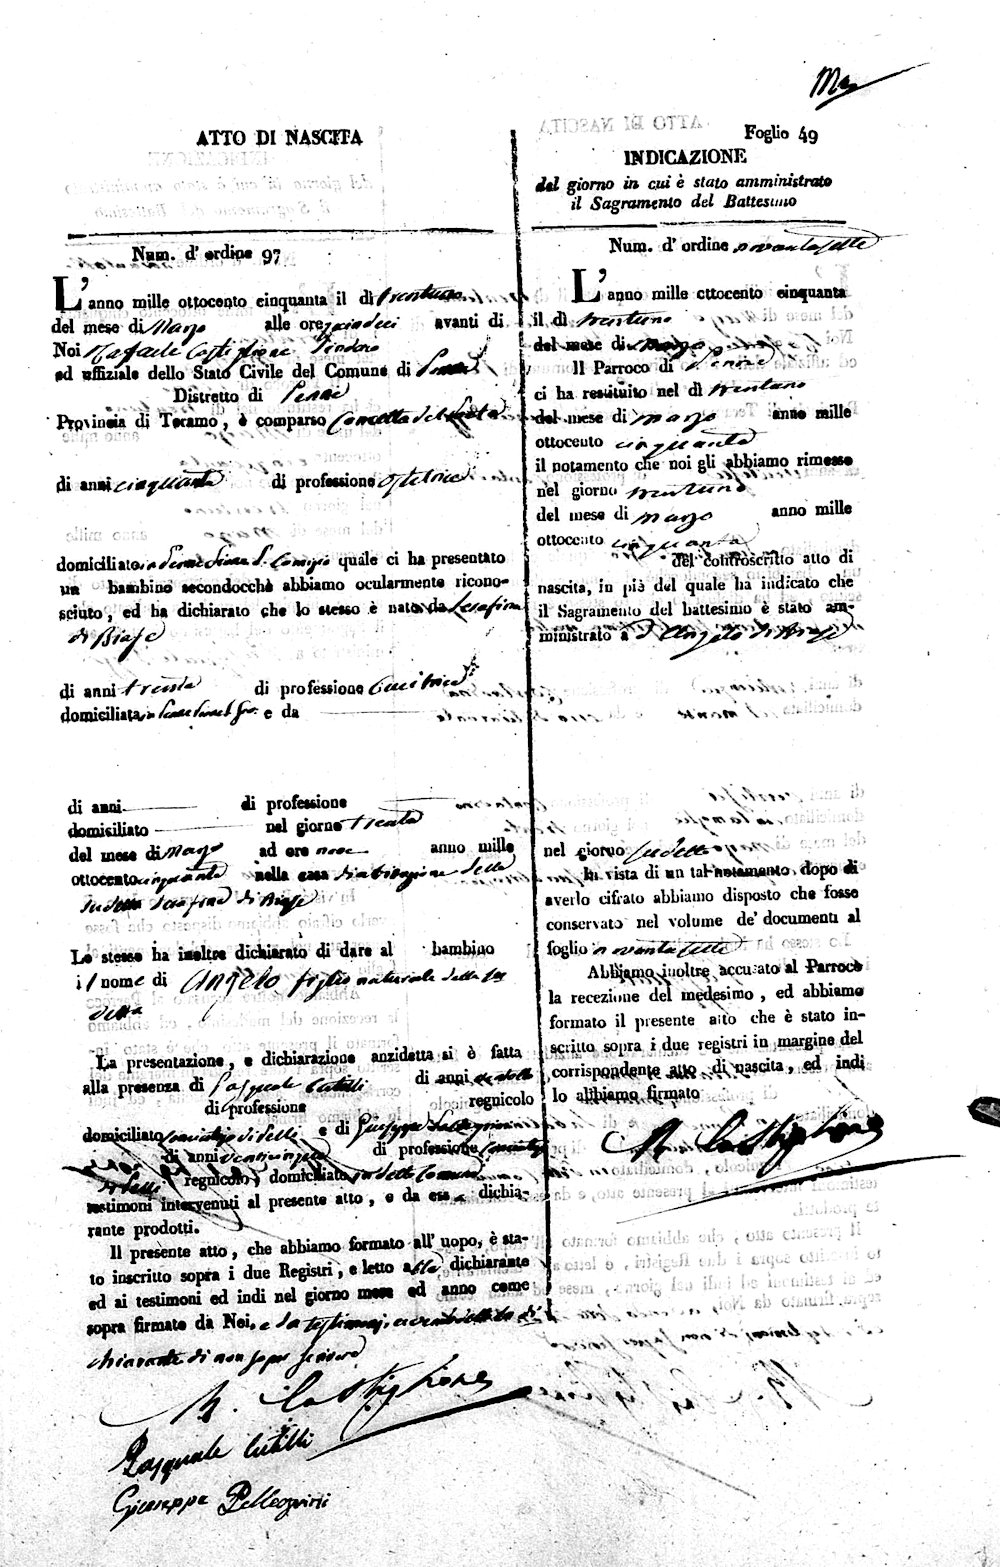 ATTO DI NASCITA
Num. d' ordine 97
L'anno mille ottocento cinquanta il dì trentuno
del mese di Marzo alle ore quindeci avanti di
Noi Rafaele Castiglione Sindaco
ed uffiziale dello Stato Civile del Comune di Penne
Distretto di Penne
Provincia di Teramo, è comparso Concetta del
di anni cinquanta di professione Ostetrice
domiciliato in Penne quale ci ha presentato
un bambino secondocchè abbiamo ocularmente ricono-
sciuto, ed ha dichiarato che lo stesso è nato da Serafina
di Biase
di anni trenta di professione Cucitrice
domiciliata in Penne e da
di anni di professione
domiciliato nel giorno trenta
del mese di Marzo ad ore nove anno mille
ottocento cinquanta nella casa di abitazione della
sudetta Serafina di Biase
Lo stesso ha inoltre dichiarato di dare al bambino
il nome di Angelo figlio naturale della su
detta
La presentazione, e dichiarazione anzidetta si è fatta
alla presenza di Pasquale Cutilli di anni
di professione regnicolo
domiciliato conciatojo di pelli e di Giuseppe Pellegrini
di anni venticinque di professione conciatojo
di pelli regnicolo, domiciliato in detto Comune
testimoni intervenuti al presente atto, e da essa dichia-
rante prodotti.
Il presente atto, che abbiamo formato all' uopo, è sta-
to inscritto sopra i due Registri, e letto alla dichiarante
ed ai testimoni ed indi nel giorno mese ed anno come
sopra firmato da Noi, e da testimonj, avendo detto la di
chiarante di non saper scrivere
R. Castiglione
Pasquale Cutilli
Giuseppe Pellegrini
Foglio 49
INDICAZIONE
del giorno in cui è stato amministrato
il Sagramento del Battesimo
Num. d' ordine novantasette
L'anno mille ottocento cinquanta
il dì trentuno
del mese di Marzo
Il Parroco di Penne
ci ha restituito nel dì trentuno
del mese di Marzo anno mille
ottocento cinquanta
il notamento che noi gli abbiamo rimesso
nel giorno trentuno
del mese di Marzo anno mille
ottocento cinquanta
del controscritto atto di
nascita, in piè del quale ha indicato che
il Sagramento del battesimo è stato am-
ministrato a Angelo di Biase
nel giorno sudetto
In vista di un tal notamento dopo di
averlo cifrato abbiamo disposto che fosse
conservato nel volume de' documenti al
foglio novantasette
Abbiamo inoltre accusato al Parroco
la recezione del medesimo, ed abbiamo
formato il presente atto che è stato in-
scritto sopra i due registri in margine del
corrispondente atto di nascita, ed indi
lo abbiamo firmato
R. Castiglione